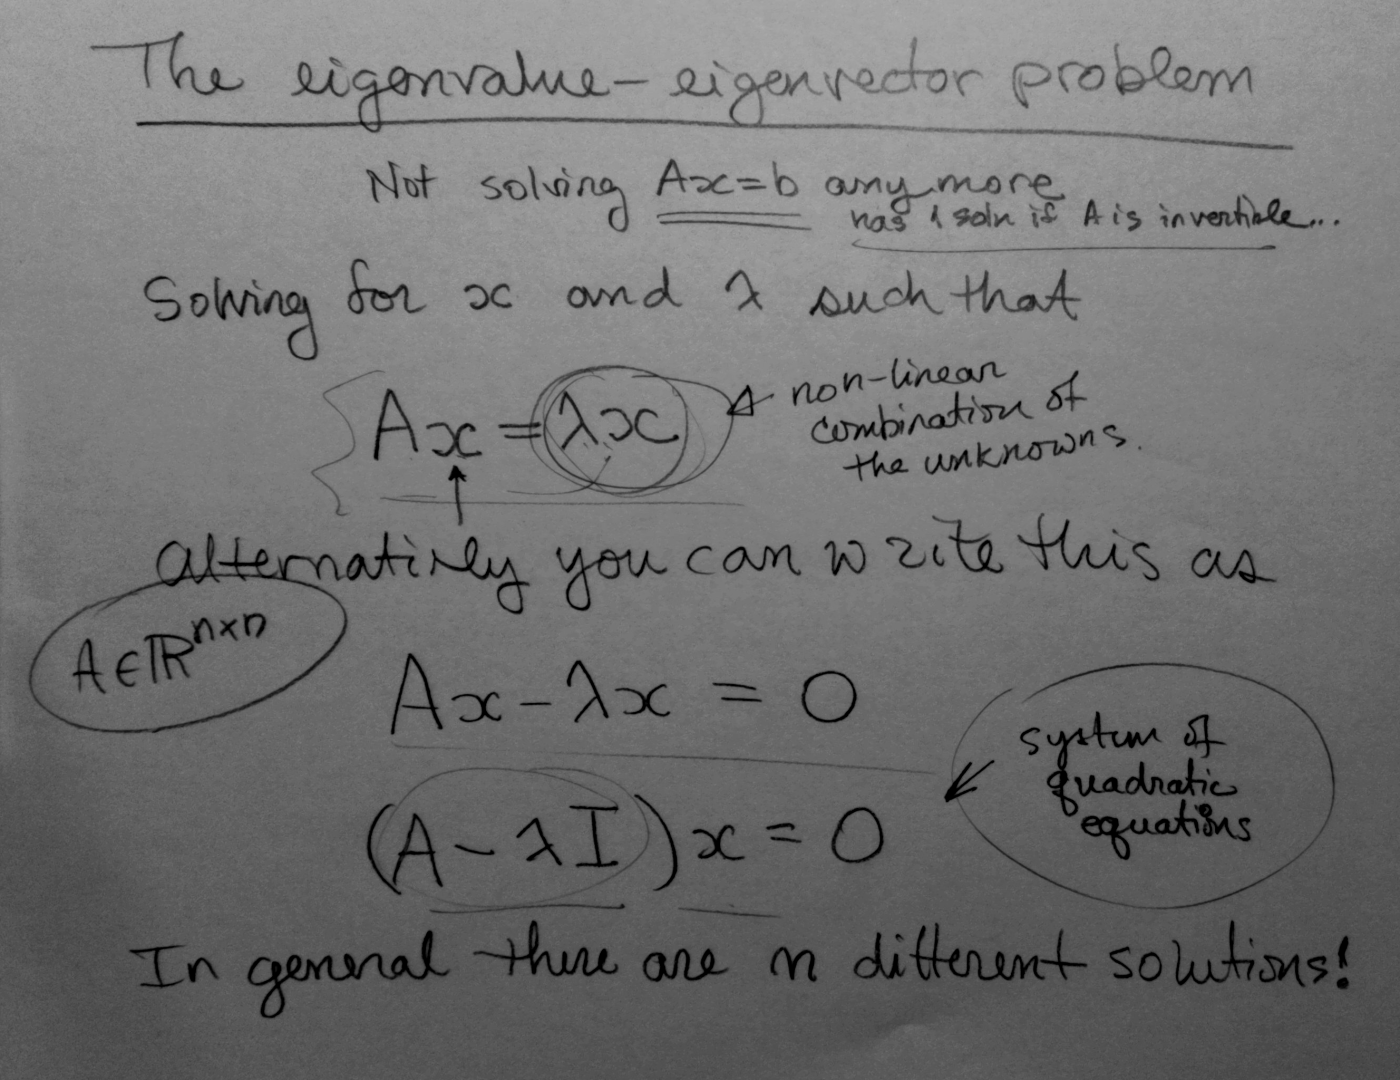 The eigenvalue-eigenvector problem
Not solving Ax=b any more
has 1 soln if A is invertible...
Solving for x and λ such that
Ax = λx
non-linear
combination of
the unknowns.
alternatively you can write this as
A∈ℝⁿˣⁿ
Ax - λx = 0
system of
quadratic
equations
(A - λI)x = 0
In general there are n different solutions!